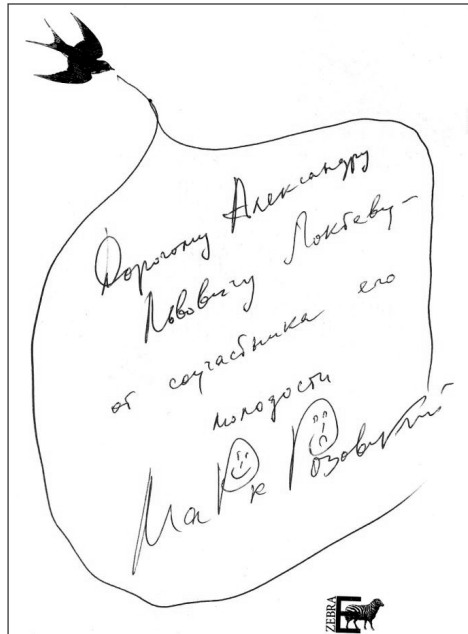 Дорогому Александру
Львовичу Локтеву –
от соучастника его
молодости
Марк Розовский
ZEBRA E